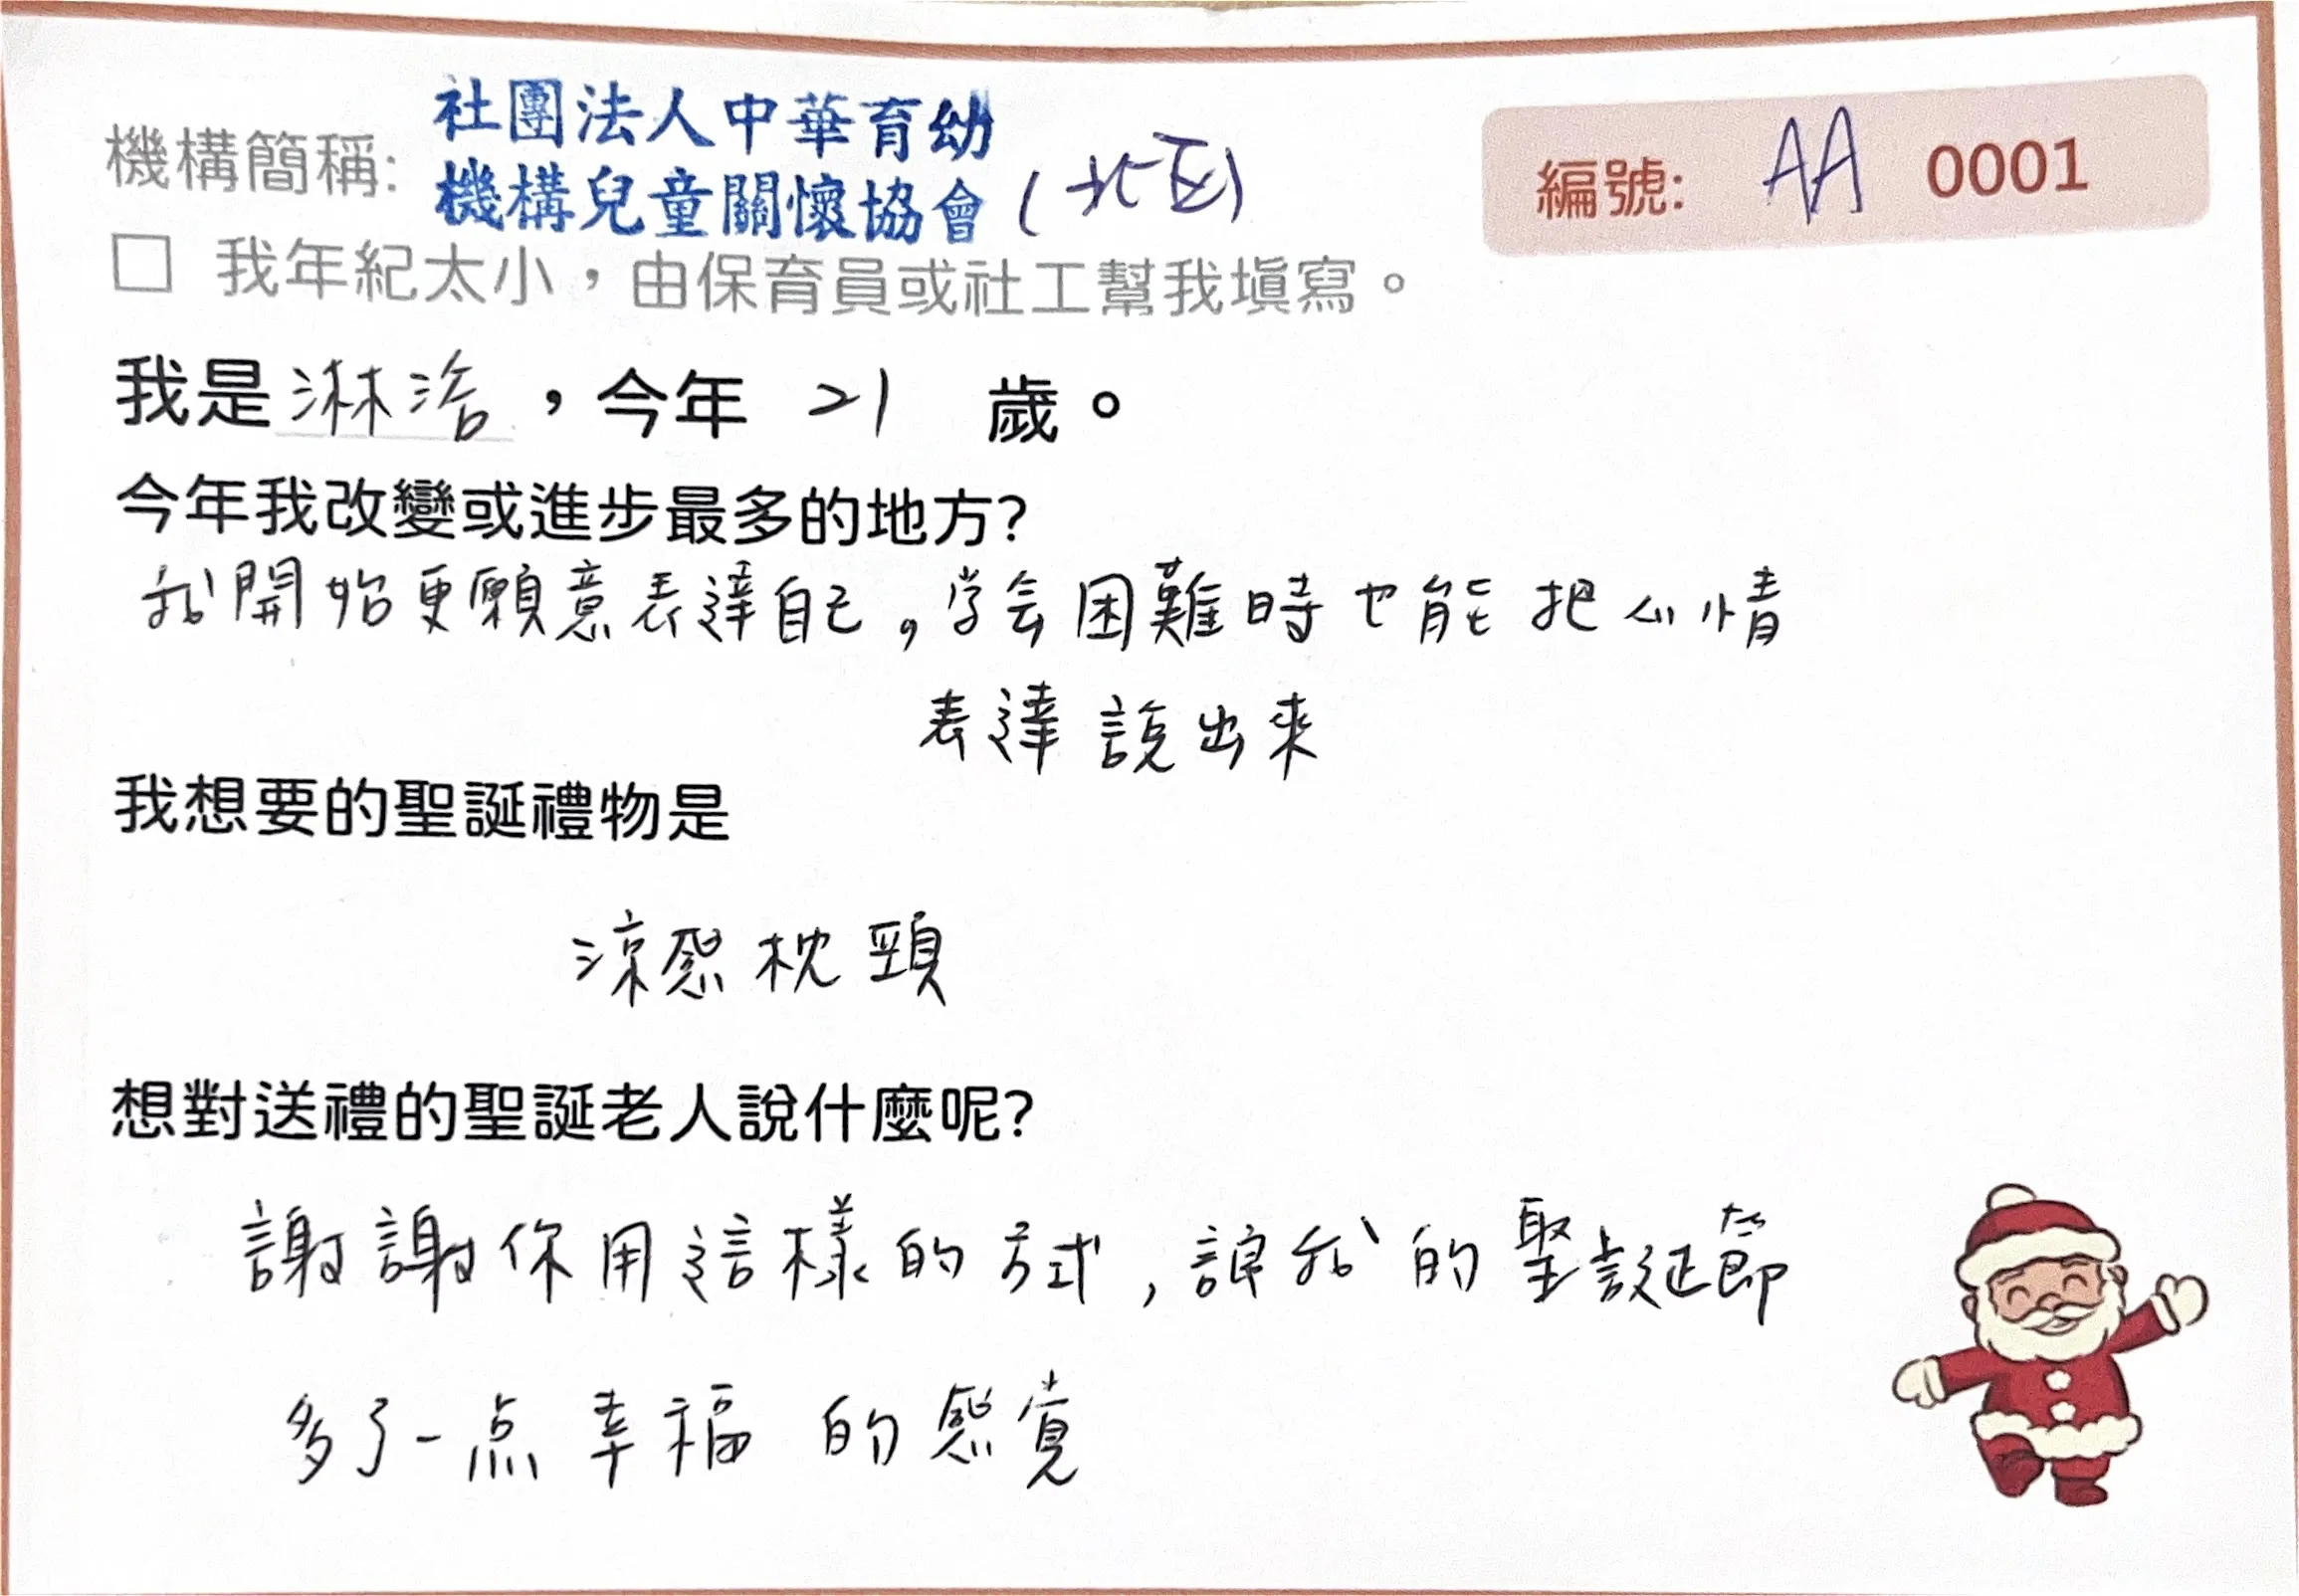 社團法人中華育幼
機構簡稱: 機構兒童關懷協會 (北区)
編號: AA 0001
□ 我年紀太小，由保育員或社工幫我填寫。
我是淋洽，今年 21 歲。
今年我改變或進步最多的地方?
我開始更願意表達自己，学会困難時也能把心情
表達說出來
我想要的聖誕禮物是
涼感枕頭
想對送禮的聖誕老人說什麼呢?
謝謝你用這樣的方式，讓我的聖誕節
多了一点幸福的感覺